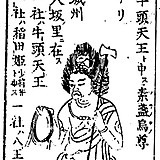 り
牛頭天王ト申ス素盞烏尊
城州
八坂里ニ在ス
社牛頭天王
社稲田姫
社八王